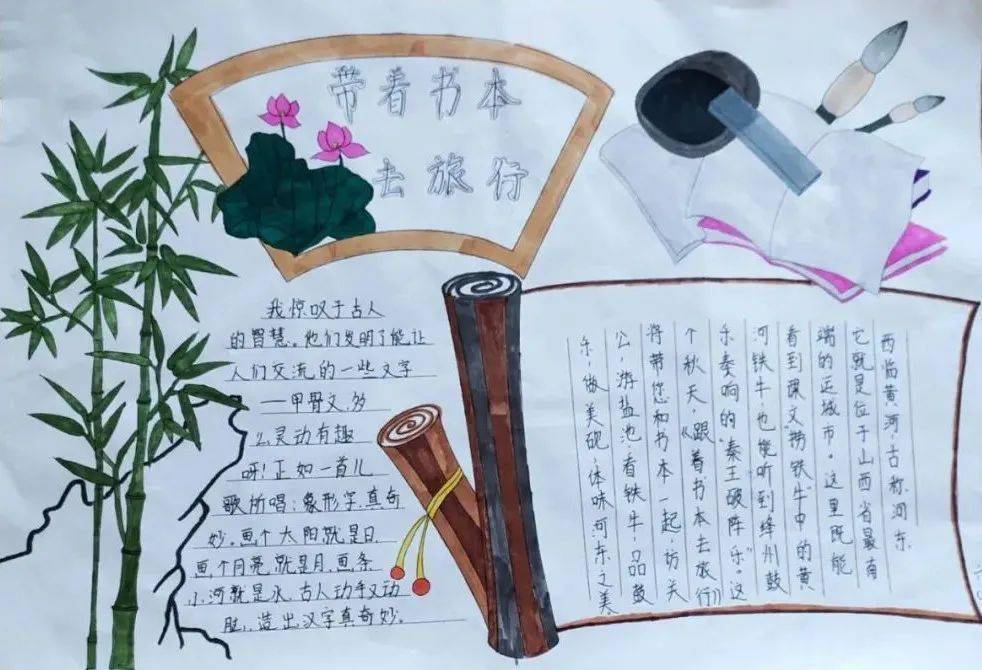 带着书本
去旅行
我惊叹于古人
的智慧。他们发明了能让
人们交流的一些文字
—甲骨文,多
么灵动有趣
呀!正如一首儿
歌所唱:象形字,真奇
妙。画个太阳就是日,
画个月亮就是月,画条
小河就是水,古人动手又动
脑,造出汉字真奇妙。
西临黄河,古称河东,
它就是位于山西省最南
端的运城市。这里既能
看到课文“捞铁牛中的黄
河铁牛,也能听到绛州鼓
乐奏响的“秦王破阵乐”。这
个秋天,《跟着书本去旅行》
将带您和书本一起,访关
公,游盐池,看铁牛,品鼓
乐,做美砚,体味河东之美